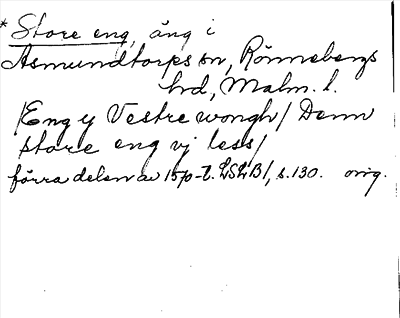 * Store eng, äng i
Asmundtorps sn, Rönnebergs
hd, Malm. l.
/Eng y Vestre wongh/ Denn
store eng vj less/
förra delen av 1570-t. LSLB1, s. 130. orig.